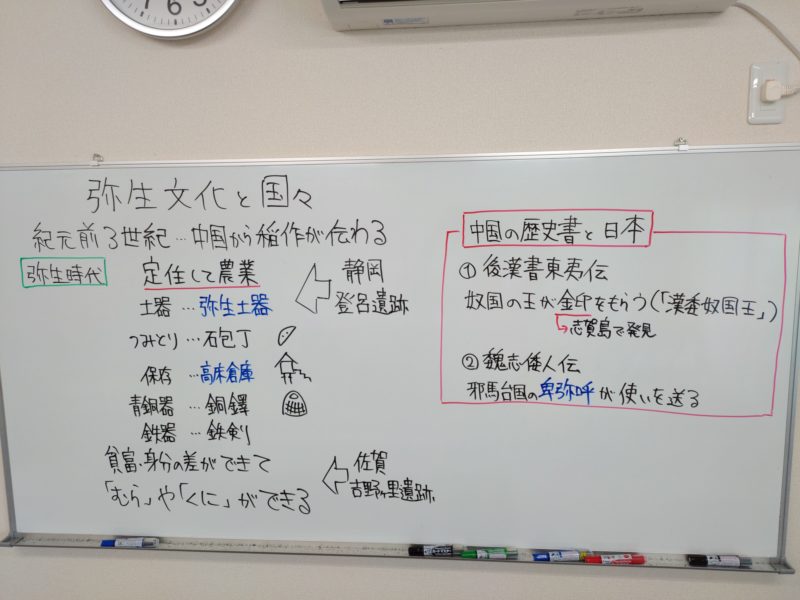 弥生文化と国々
紀元前3世紀…中国から稲作が伝わる
弥生時代
定住して農業
静岡
登呂遺跡
土器…弥生土器
つみとり…石包丁
保存…高床倉庫
青銅器…銅鐸
鉄器…鉄剣
貧富・身分の差ができて
「むら」や「くに」ができる
佐賀
吉野ヶ里遺跡
中国の歴史書と日本
①後漢書東夷伝
奴国の王が金印をもらう(「漢委奴国王」)
志賀島で発見
②魏志倭人伝
邪馬台国の卑弥呼が使いを送る